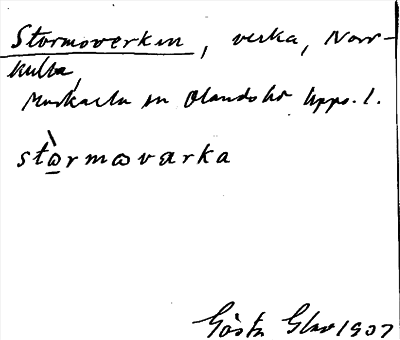 Stormoverken, verka, Norr-
kulla,
Markarla sn Olandshd Upps. l.
stòrmωvarka
Gösta 1907